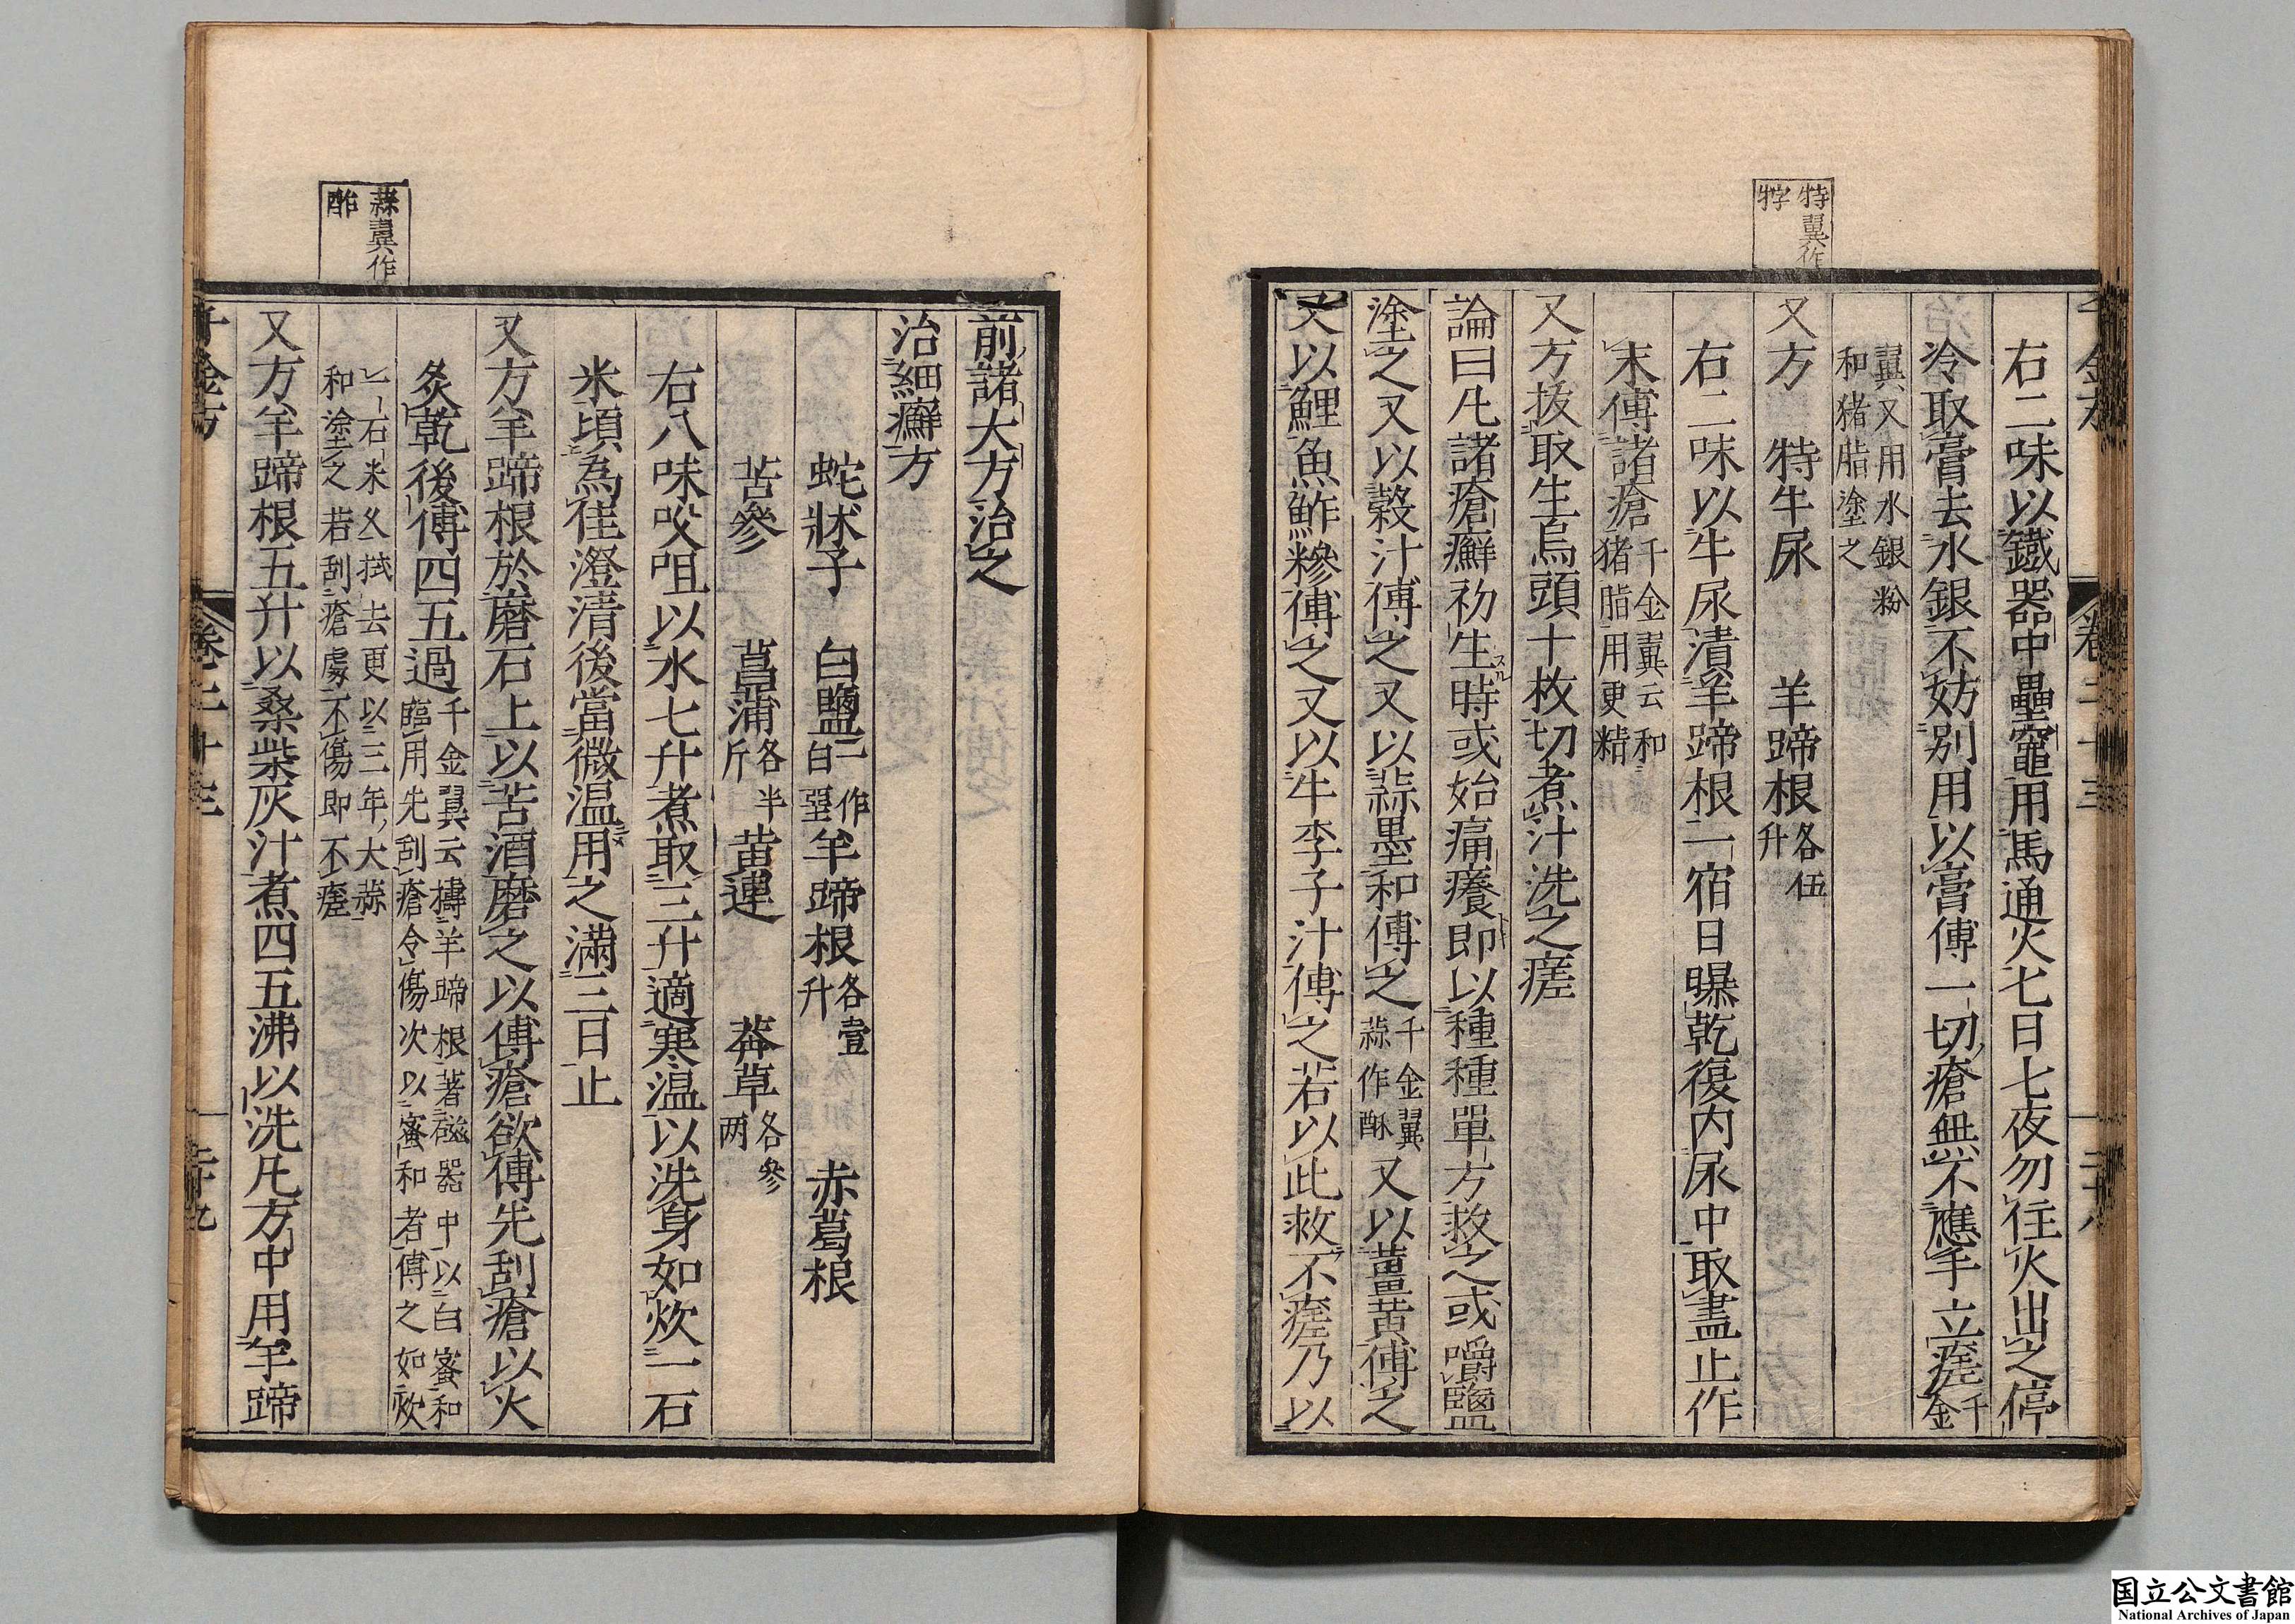 特翼作
㹀
右二味以鐵器中壘竈用馬通火七日七夜勿住火出之停
冷取膏去水銀不妨別用以膏傅一切瘡無不應手立瘥千金
翼又用水銀粉
和猪脂塗之
又方　特牛尿　羊蹄根各伍升
右二味以牛尿漬羊蹄根一宿日曝乾復内尿中取盡止作
末傅諸瘡千金翼云和猪脂用更精
又方拔取生烏頭十枚切煮汁洗之瘥
論曰凡諸瘡癬初生時或始痛癢即以種種單方救之或嚼鹽
塗之又以穀汁傅之又以蒜墨和傅之千金翼蒜作酥又以薑黃傅之
又以鯉魚鮓糝傅之又以牛李子汁傅之若以此救不瘥乃以
蒜翼作
酢
前諸大方治之
治細癬方
蛇牀子　白鹽一作白堊　羊蹄根各壹升　赤葛根
苦參　菖蒲各半斤　黃連　莽草各參两
右八味㕮咀以水七升煮取三升適寒温以洗身如炊一石
米頃為佳澄清後當微温用之滿三日止
又方羊蹄根於磨石上以苦酒磨之以傅瘡欲傅先刮瘡以火
炙乾後傅四五過千金翼云擣羊蹄根著磁器中以白蜜和
臨用先刮瘡令傷次以蜜和者傅之如炊
一石米久拭去更以三年大蒜
和塗之若刮瘡處不傷即不瘥
又方羊蹄根五升以桑柴灰汁煮四五沸以洗凡方中用羊蹄
千金方　卷二十三
国立公文書館
National Archives of Japan